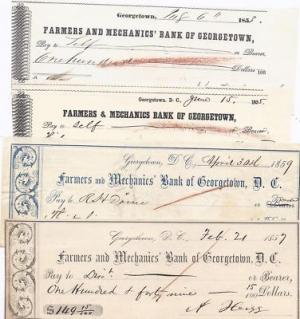 Georgetown, Aug 6th 1858.
FARMERS AND MECHANICS' BANK OF GEORGETOWN,
Pay to Self or Bearer,
One hundred Dollars 100
Georgetown, D. C., June 15. 185
FARMERS & MECHANICS BANK OF GEORGETOWN,
Pay to self or Bearer
Georgetown, D. C., April 30th 1859
Farmers and Mechanics' Bank of Georgetown, D. C.
Pay to R H
Georgetown, D. C. Feb. 21 1857
Farmers and Mechanics' Bank of Georgetown, D. C.
Pay to or Bearer,
One Hundred & forty nine 15/100 Dollars.
$149 15/100